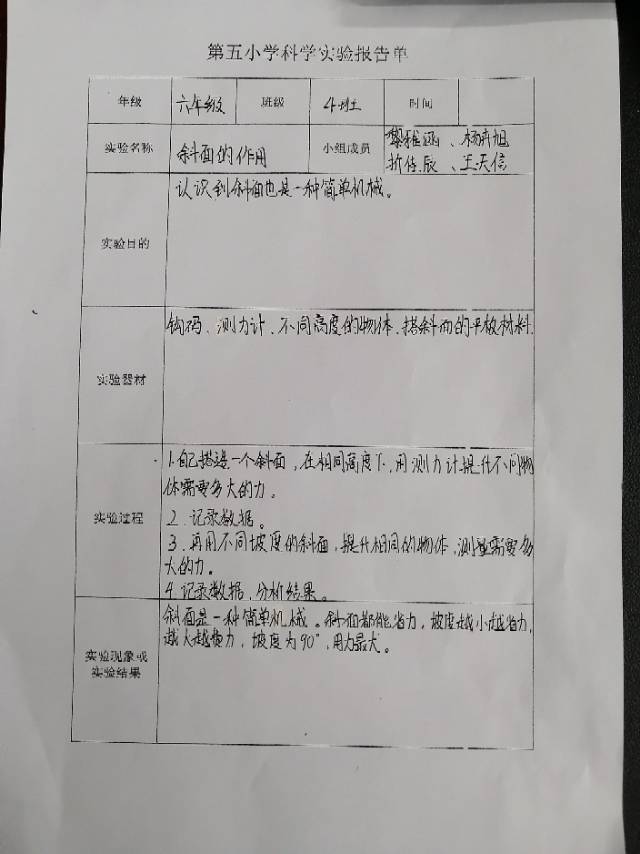 第五小学科学实验报告单
年级 六年级 班级 4班 时间
实验名称 斜面的作用 小组成员 雅涵、杨 旭
佳欣、王天信
实验目的 认识到斜面也是一种简单机械。
实验器材 钩码、测力计、不同高度的物体、搭斜面的平板材料.
实验过程 1.自己搭建一个斜面,在相同高度下,用测力计提升不同物
体需要多大的力。
2.记录数据。
3.再用不同坡度的斜面,提升相同的物体,测量需要多
大的力。
4.记录数据,分析结果。
实验现象或
实验结果 斜面是一种简单机械。斜面都能省力,坡度越小越省力,
越大越费力,坡度为90°,用力最大。